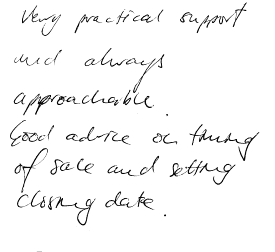 Very practical support
and always
approachable.
Good advice on timing
of sale and setting
closing date.